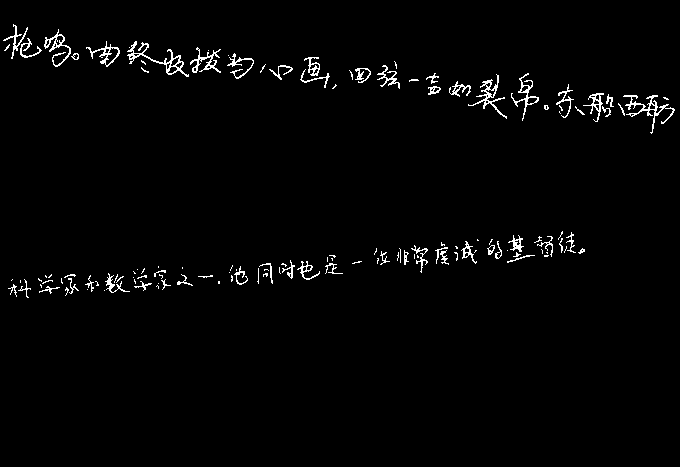 枪鸣。曲终收拨当心画,四弦一声如裂帛。东船西舫
科学家和数学家之一,他同时也是一位非常虔诚的基督徒。